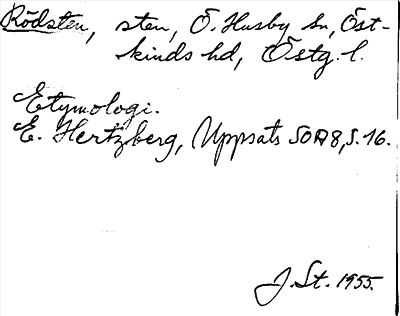 Rödsten, sten, Ö. Husby sn, Öst-
kinds hd, Östg. l.
Etymologi.
E. Hertzberg, Uppsats SOÄ8, S. 16.
J. St. 1955.